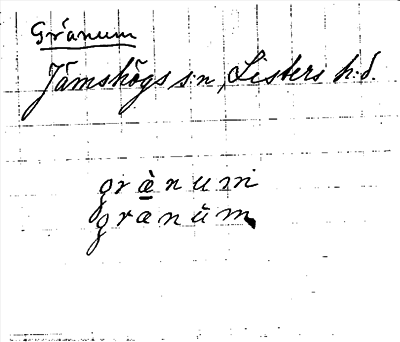 Gränum
Jämshögs sn, Listers h.d.
grànum
granùm